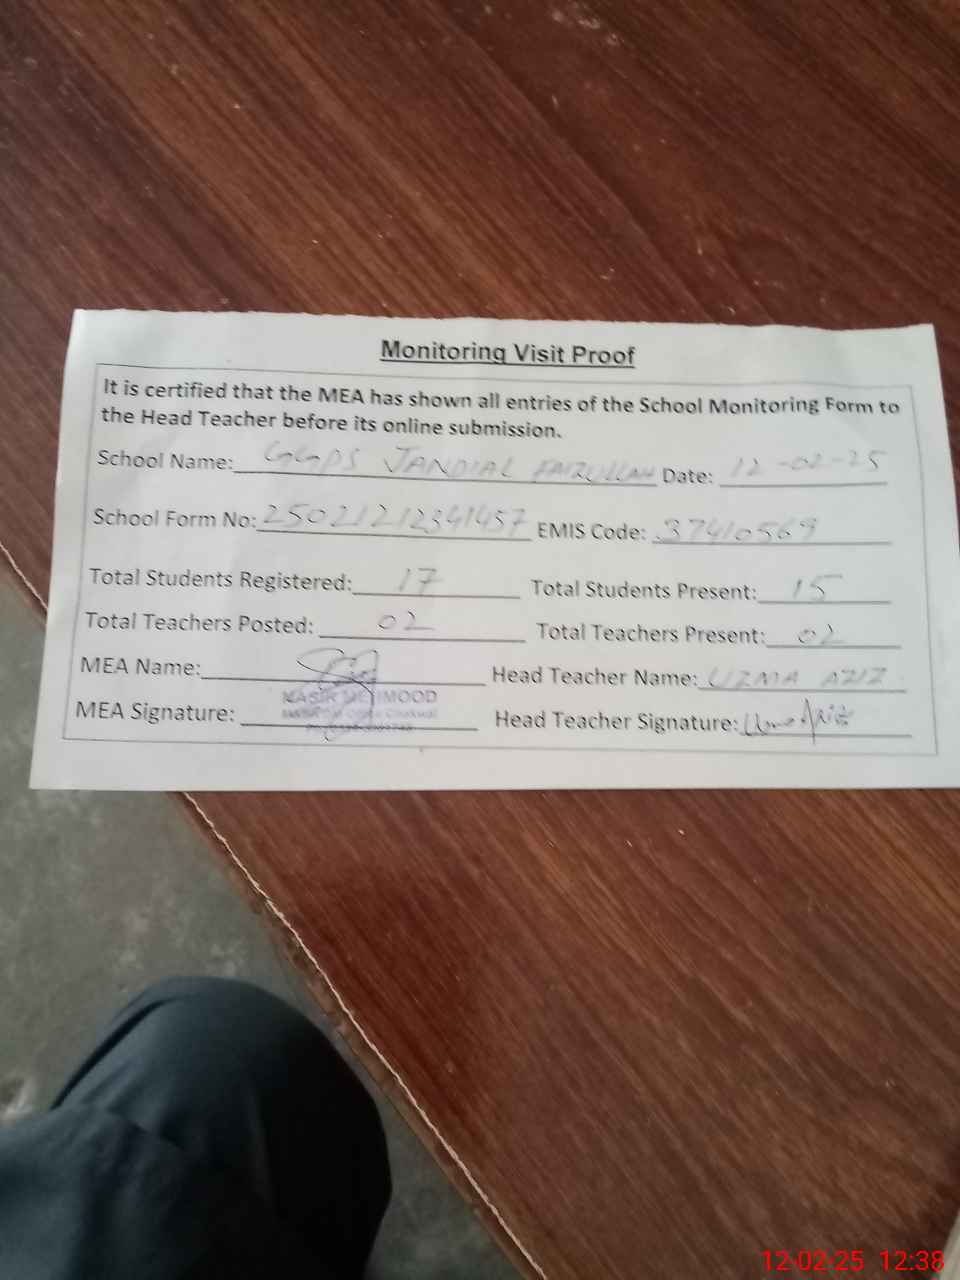 Monitoring Visit Proof
It is certified that the MEA has shown all entries of the School Monitoring Form to
the Head Teacher before its online submission.
School Name: GGPS JANDIAL FAIZULLAH Date: 12-02-25
School Form No: 25021212341457 EMIS Code: 37410569
Total Students Registered: 17 Total Students Present: 15
Total Teachers Posted: 02 Total Teachers Present: 02
MEA Name: Head Teacher Name: UZMA AZIZ
NASIR MEHMOOD
MEA Signature: Chakwal Head Teacher Signature: Uzma Aziz
12-02-25 12:38